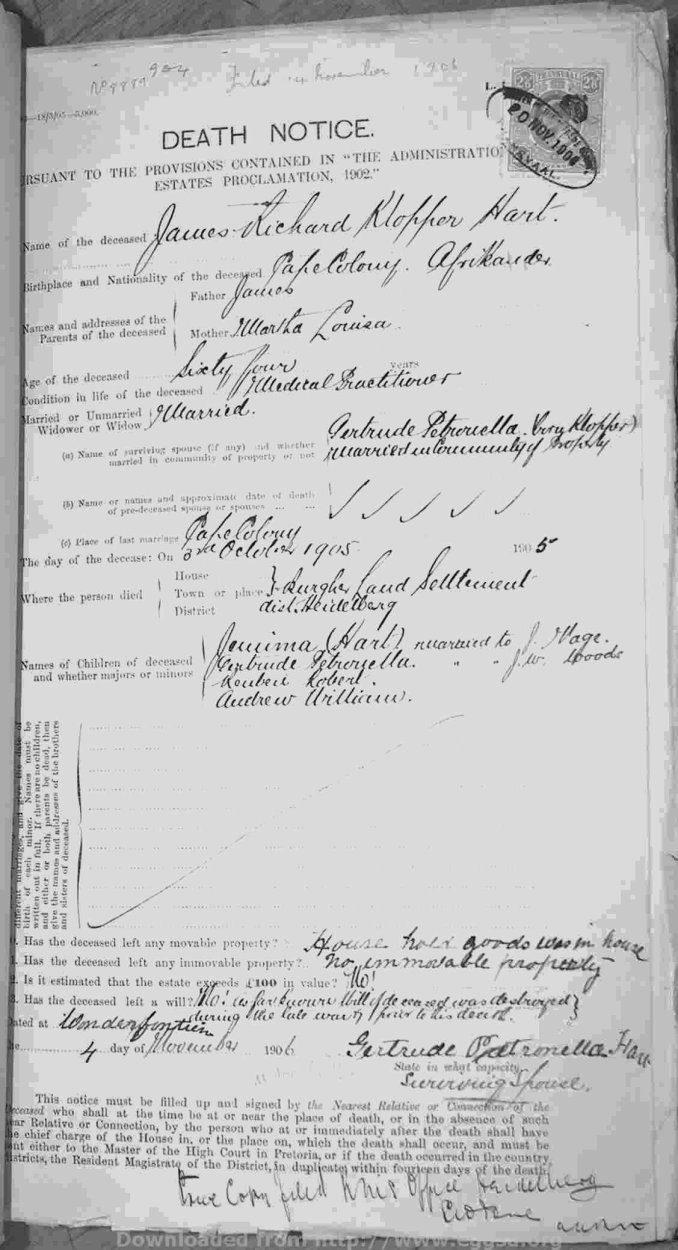 No 8889 904 Filed in November 1906
—18/3/05—5,000.
TRANSVAAL
2/6 2/6
20 NOV. 1906
TRANSVAAL.
DEATH NOTICE.
RSUANT TO THE PROVISIONS CONTAINED IN "THE ADMINISTRATIO
ESTATES PROCLAMATION, 1902."
Name of the deceased James Richard Klopper Hart.
Birthplace and Nationality of the deceased Cape Colony. Afrikander
Names and addresses of the Parents of the deceased
Father James
Mother Martha Louisa.
Age of the deceased Sixty four years
Condition in life of the deceased Medical Practitioner
Married or Unmarried Widower or Widow Married.
(a) Name of surviving spouse (if any) and whether married in community of property or not
Gertrude Petronella (born Klopper)
married in Community of Property
(b) Name or names and approximate date of death
of pre-deceased spouse or spouses ... ...
(c) Place of last marriage Cape Colony
The day of the decease: On 3rd October 1905. 1905
Where the person died
House
Town or place Burgher Land Settlement
District dist. Heidelberg
Names of Children of deceased
and whether majors or minors
Jemima (Hart) married to J. Mage.
Gertrude Petronella. " " J. W. Woods
Reuben Robert.
Andrew William.
different marriages, and give the date of
birth of each minor. Names must be
written out in full. If there are no children,
and either or both parents be dead, then
give the names and addresses of the brothers
and sisters of deceased.
Has the deceased left any movable property? House hold goods was in house
Has the deceased left any immovable property? No immovable property
Is it estimated that the estate exceeds £100 in value? No!
Has the deceased left a will? No! as far known Will of deceased was destroyed
during the late war prior to his decease.
Dated at Wonderfontein
4 day of November 1906
Gertrude Petronella Har
State in what capacity
Surviving Spouse.
This notice must be filled up and signed by the Nearest Relative or Connection of the
deceased who shall at the time be at or near the place of death, or in the absence of such
near Relative or Connection, by the person who at or immediately after the death shall have
the chief charge of the House in, or the place on, which the death shall occur, and must be
sent either to the Master of the High Court in Pretoria, or if the death occurred in the country
districts, the Resident Magistrate of the District, in duplicate, within fourteen days of the death.
True Copy filed RM's Office Heidelberg
Downloaded from http://www.eggsa.org